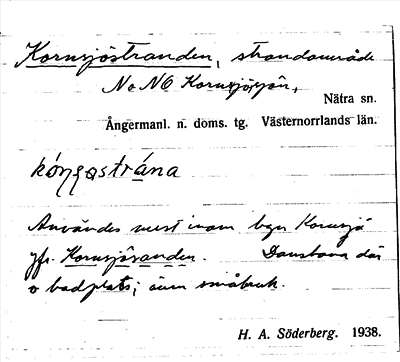 Kornsjöstranden, strandområde
N o NO Kornsjösjön,
Nätra sn.
Ångermanl. n. doms. tg. Västernorrlands län.
Användes mest inom byn Kornsjö
jfr. Kornsjösanden. Dansbana där
o badplats; även småbruk.
H. A. Söderberg. 1938.